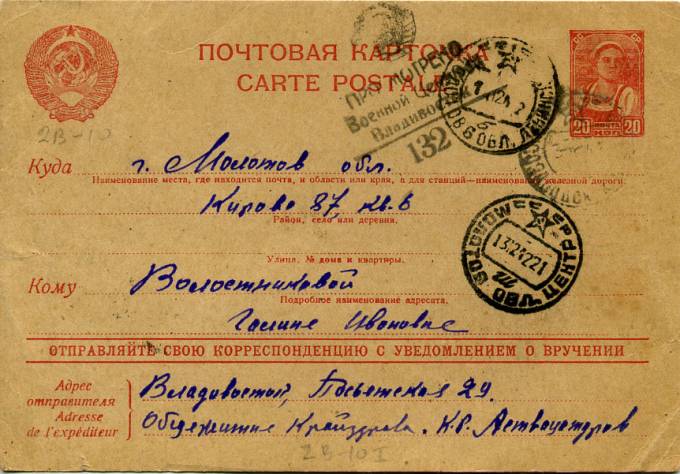 ПОЧТОВАЯ КАРТОЧКА
CARTE POSTALE
ПРОСМОТРЕНО
Военной Цензурой
Владивосток
132
20 ПОЧТА КОП. 20
2В-10
Куда г. Молотов обл.
Наименование места, где находится почта, и области или края, а для станций—наименование железной дороги.
Кирова 87, кв. 6
Район, село или деревня.
Улица, № дома и квартиры.
МОЛОТОВ ЦЕНТР ОБЛ.
Кому Волостниковой
Подробное наименование адресата.
Галине Ивановне
ОТПРАВЛЯЙТЕ СВОЮ КОРРЕСПОНДЕНЦИЮ С УВЕДОМЛЕНИЕМ О ВРУЧЕНИИ
Адрес отправителя
Adresse de l'expéditeur
Владивосток, Посьетская 29.
Общежитие Крайздрава. К.Р.
2В-10I